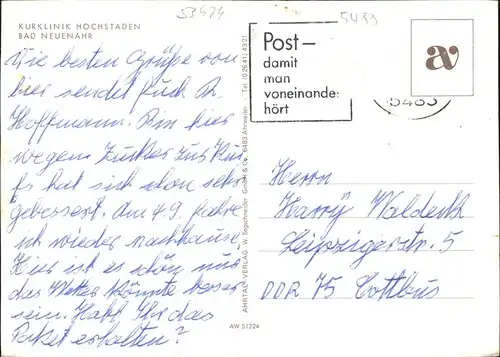 53474
5433
KURKLINIK HOCHSTADEN
BAD NEUENAHR
Die besten Grüße von
hier sendet Euch A.
Hoffmann. Bin hier
wegen Zucker zur Kur
Es hat sich schon sehr
gebessert. Am 4.9. fahre
ich wieder nachhause.
Hier ist es schön nur
das Wetter könnte besser
sein. Habt Ihr das
Paket erhalten?
AHRTAL-VERLAG W. Segschneider GmbH & Co. 5483 Ahrweiler Tel. (0 26 41) 43 21
Post–
damit
man
voneinander
hört
5483
av
Herrn
Harry Waldeck
Leipzigerstr. 5
DDR 75 Cottbus
AW 51224